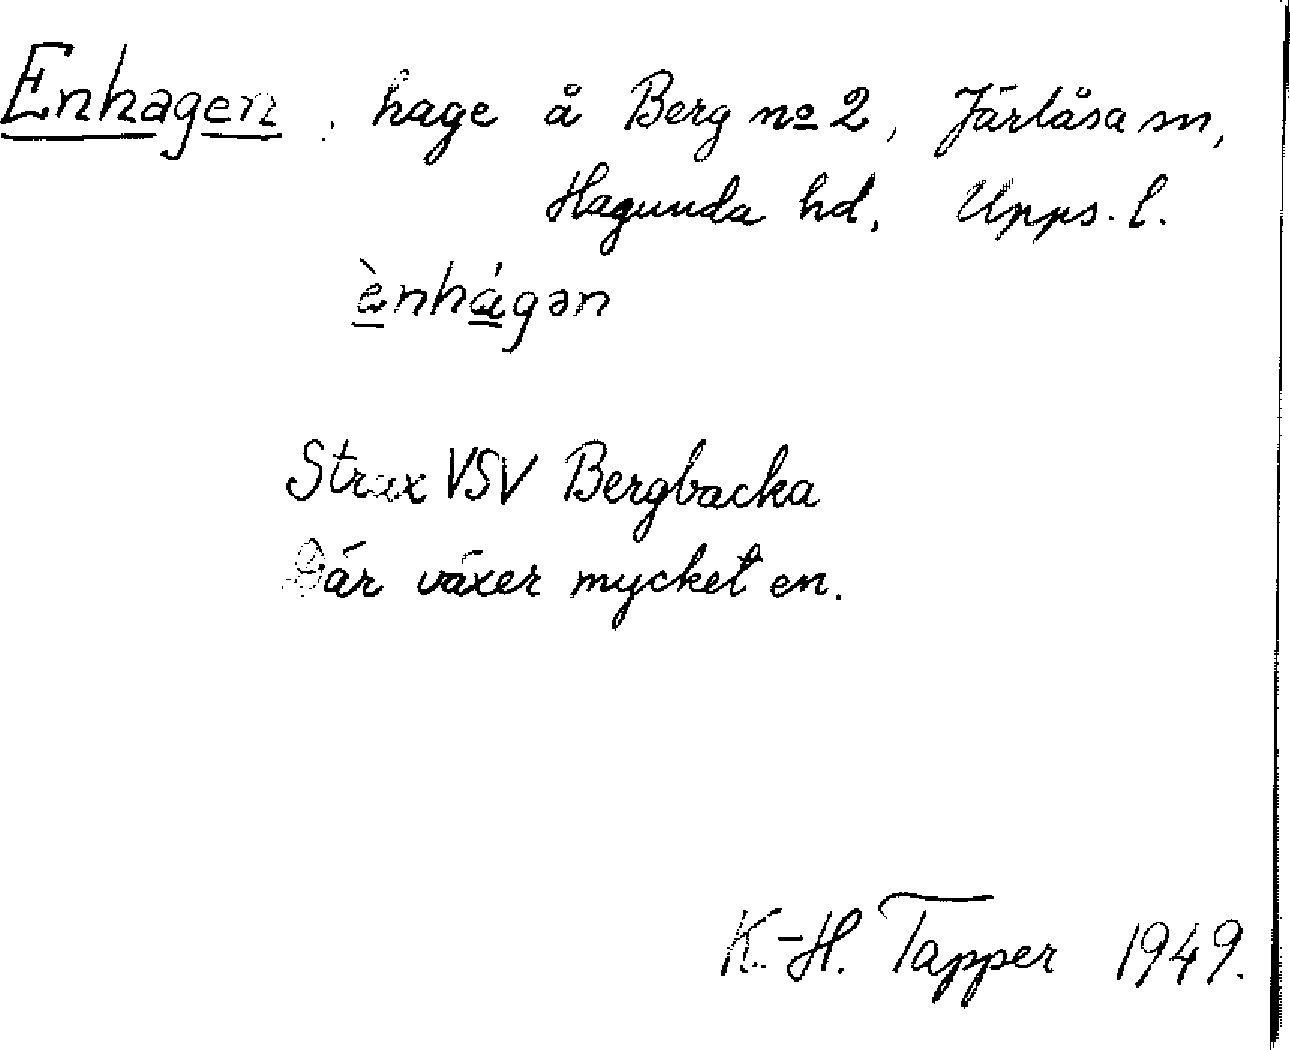 Enhagen, hage å Berg nº 2, Järlåsa sn,
Hagunda hd, Upps. l.
ènhágən
Strax VSV Bergbacka
Där växer mycket en.
K.-H. Tapper 1949.